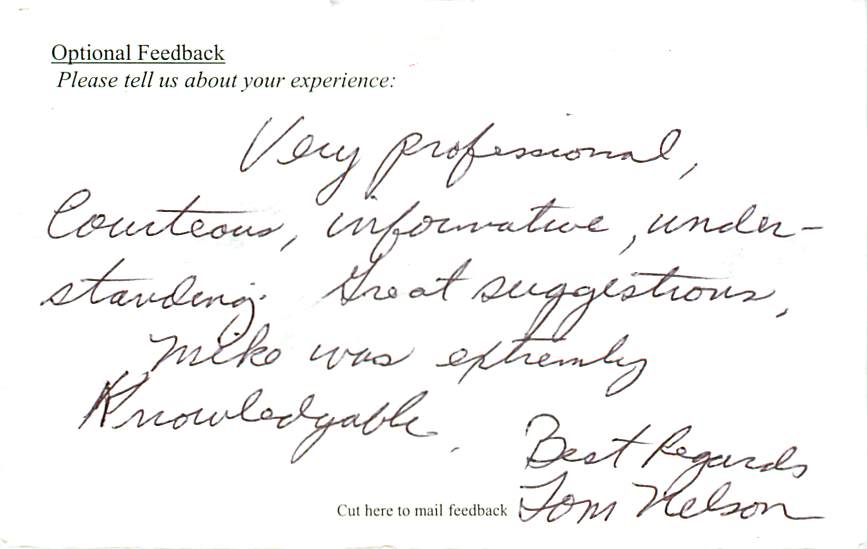 Optional Feedback
Please tell us about your experience:
Very professional,
Courteous, informative, under-
standing. Great suggestions,
Mike was extremly
Knowledgable.
Best Regards
Cut here to mail feedback Tom Nelson